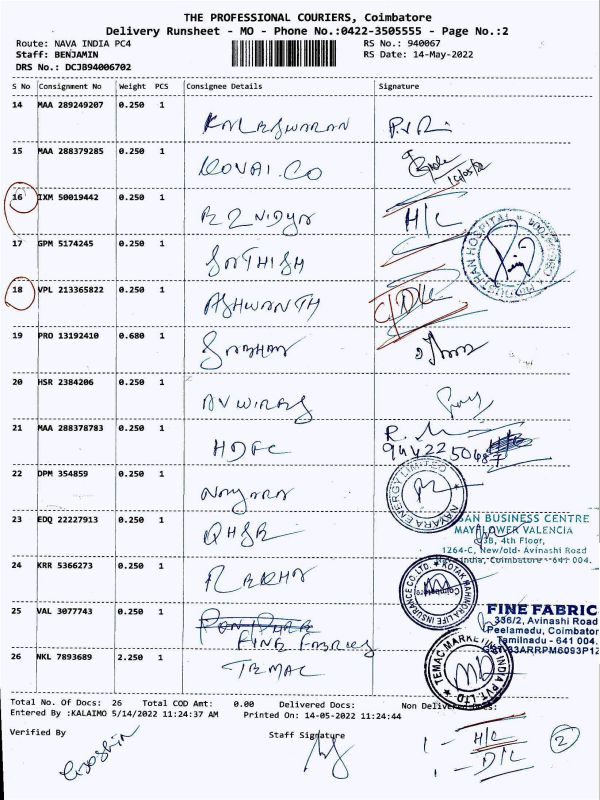 THE PROFESSIONAL COURIERS, Coimbatore
Delivery Runsheet - MO - Phone No.:0422-3505555 - Page No.:2
Route: NAVA INDIA PC4 RS No.: 940067
Staff: BENJAMIN RS Date: 14-May-2022
DRS No.: DCJB94006702
S No Consignment No Weight PCS Consignee Details Signature
14 MAA 289249207 0.250 1 KALESWARAN
15 MAA 288379285 0.250 1 KOVAI.CO
16 IXM 50019442 0.250 1 H/C
17 GPM 5174245 0.250 1 SATHISH
HOSPITAL
18 VPL 213365822 0.250 1 ASHWANTH
19 PRO 13192410 0.680 1
20 HSR 2384206 0.250 1
21 MAA 288378783 0.250 1 HDFC
22 DPM 354859 0.250 1 NAYARA
NAYARA ENERGY LIMITED
23 EDQ 22227913 0.250 1
BUSINESS CENTRE
MAYFLOWER VALENCIA
4th Floor,
1264-C, New/old- Avinashi Road
Coimbatore - 641 004.
24 KRR 5366273 0.250 1 REKHA
KOTAK MAHINDRA LIFE INSURANCE CO.LTD.
Coimbatore
25 VAL 3077743 0.250 1
FINE FABRICS
FINE FABRIC
336/2, Avinashi Road
Peelamedu, Coimbator
Tamilnadu - 641 004.
26 NKL 7893689 2.250 1 TEMAC
TEMAC MARKETING INDIA PVT. LTD
Total No. Of Docs: 26 Total COD Amt: 0.00 Delivered Docs: Non Delivered Docs:
Entered By :KALAIMO 5/14/2022 11:24:37 AM Printed On: 14-05-2022 11:24:44
Verified By Staff Signature
1 - H/C
1 - D/L
2